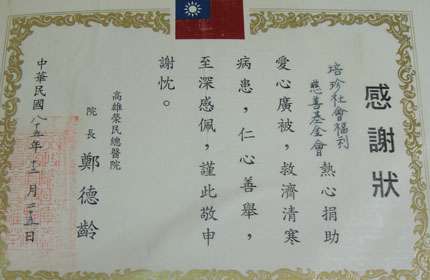 感謝狀
培珍社會福利
慈善基金會
熱心捐助
愛心廣被，救濟清寒
病患，仁心善舉，
至深感佩，謹此敬申
謝忱。
高雄榮民總醫院
院長 鄭德齡
中華民國八十五年十二月二十五日